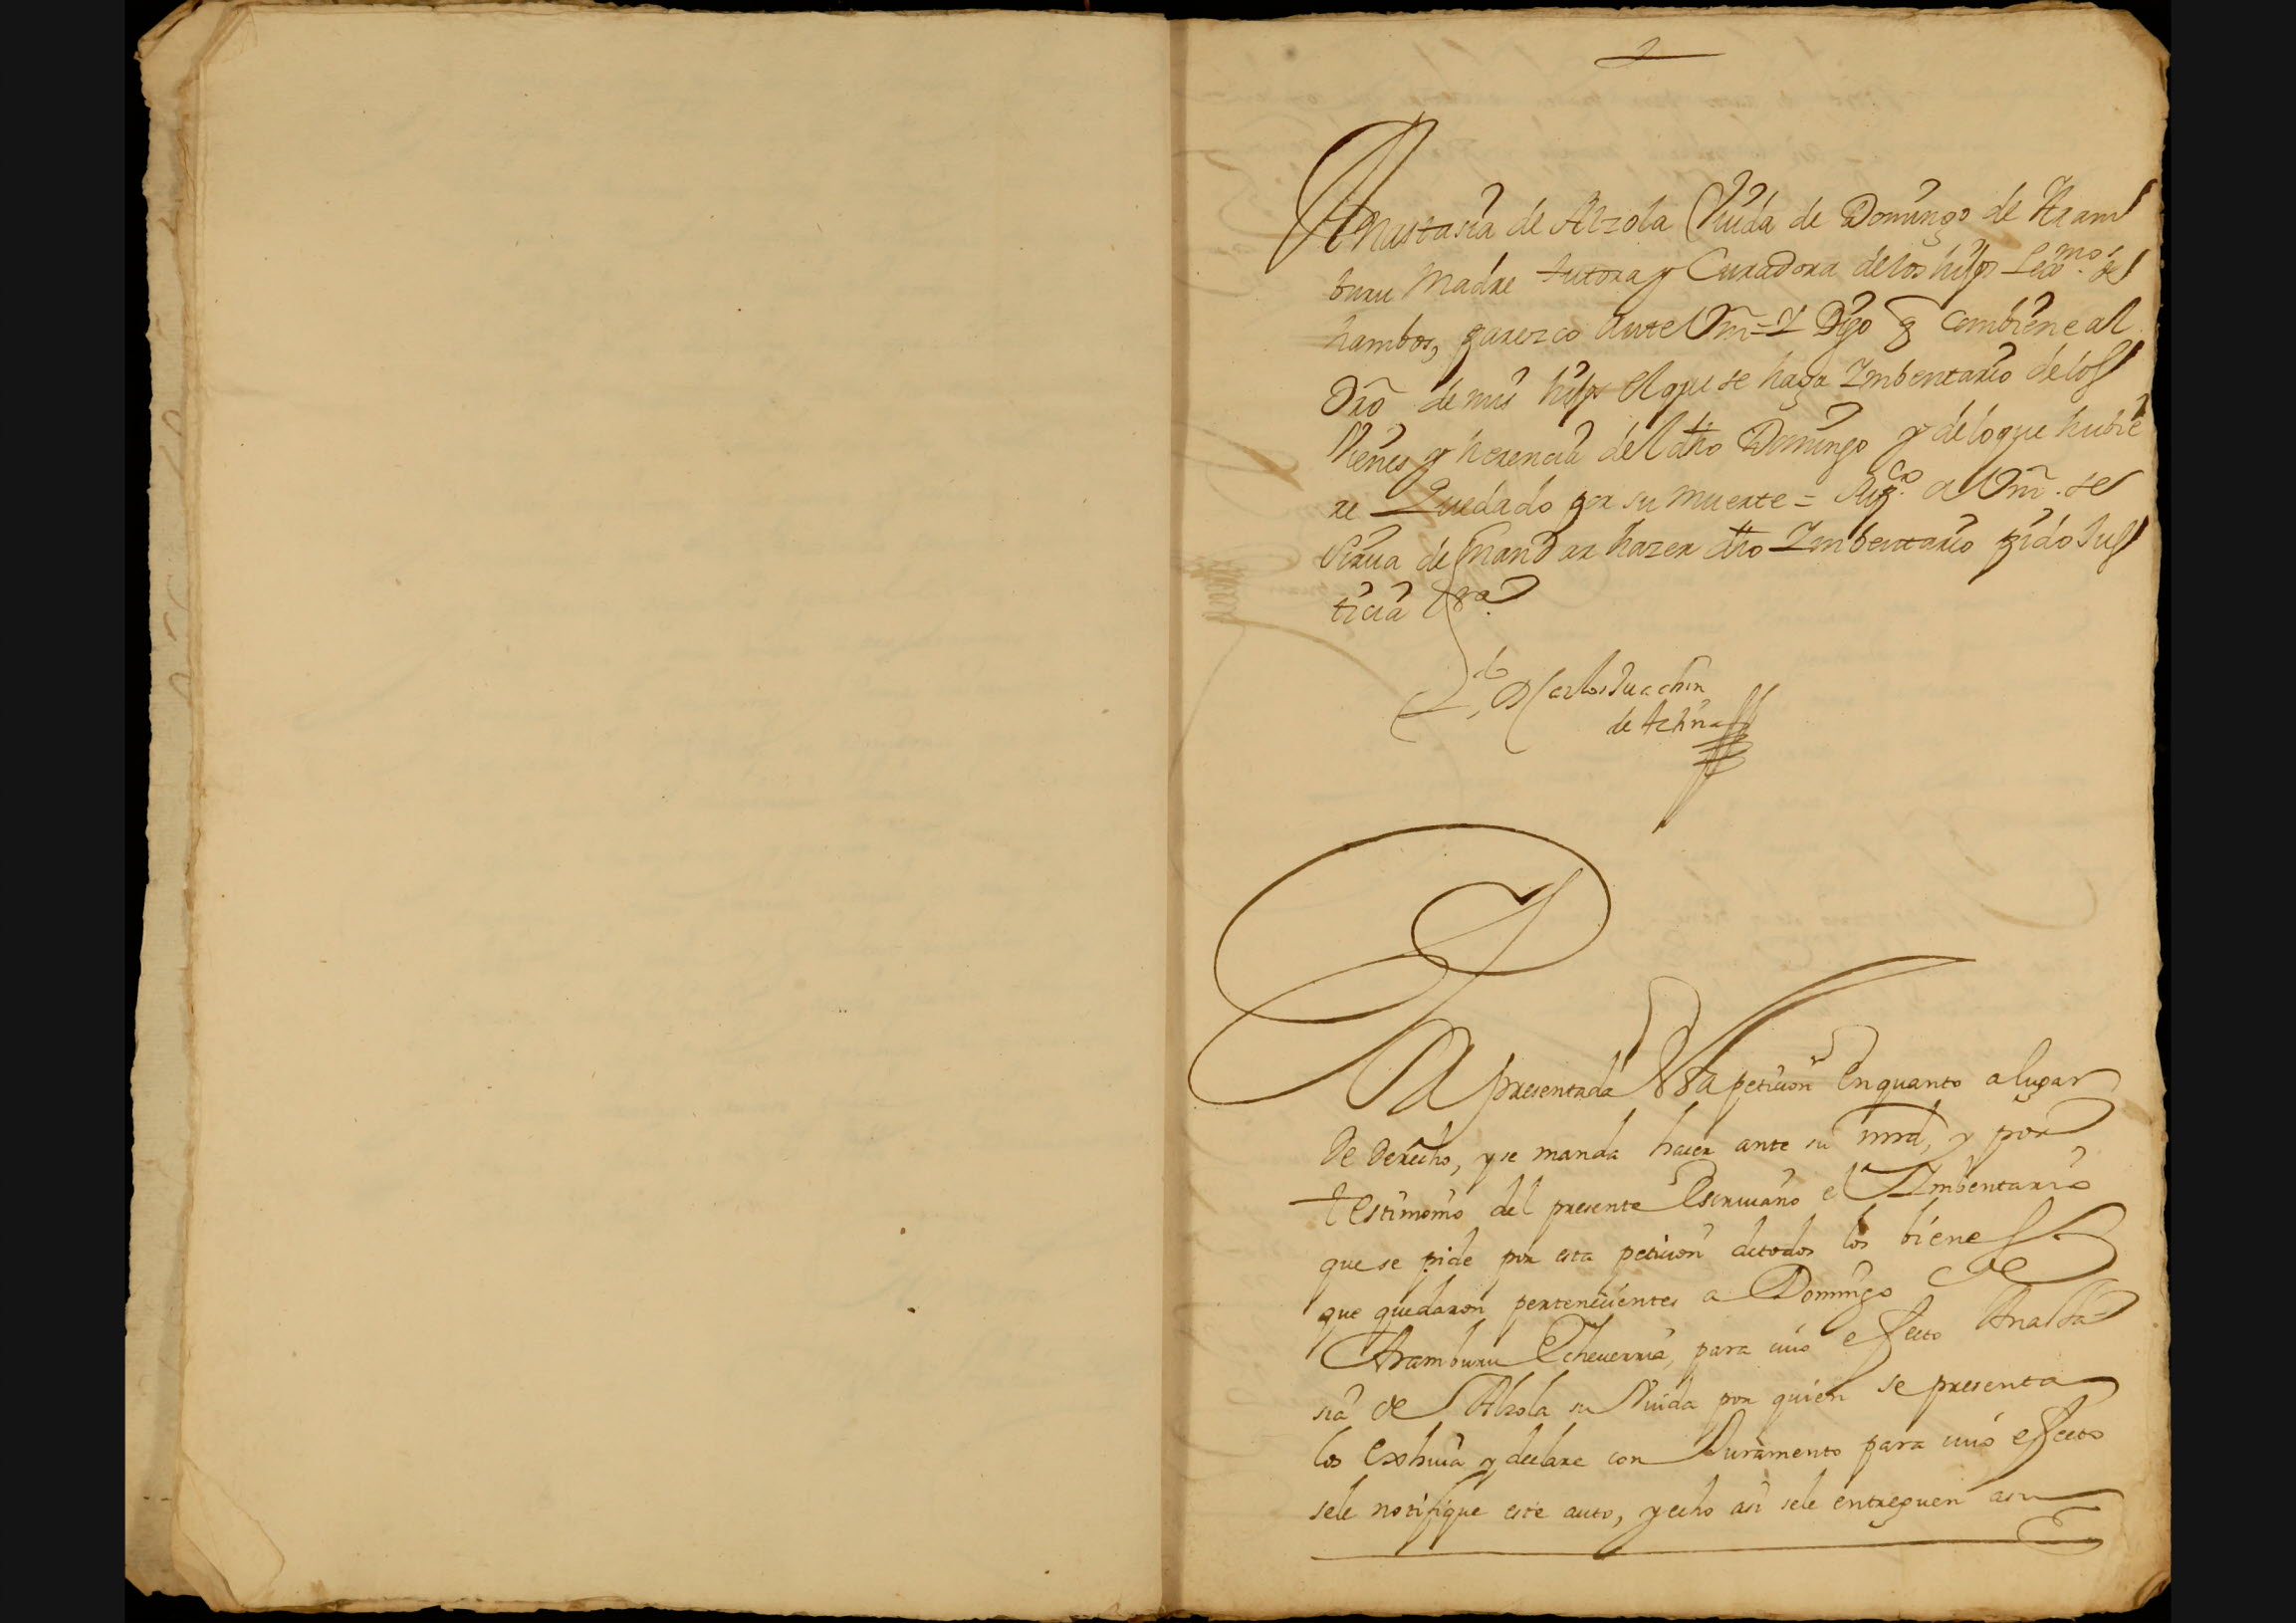 Anastasia de Alzola Viuda de Domingo de Aram
buru Madre tutora y Curadora de los hijos Lexmos. de
hambos, parezco ante Vm = Y Digo q combiene al
Dro de mis hijos el que se haga Imbentario de los
Vienes y herencia del dho Domingo y de lo que hubie
re Quedado por su muerte = Supco. a Vm. se
Sirua de Mandar hazer dho Imbentario pido Jus
ticia &ra.
Ldo. D Carlos Juachin
de
Por presentada esta peticion en quanto a lugar
de derecho, y se manda hacer ante su mrd, y por
testimonio del presente Escriuano el Imbentario
que se pide por esta peticion de todos los bienes
que quedaron pertenecientes a Domingo de
Aramburu Echeuerria, para cuio effecto Anasta
sia de Alzola su Viuda por quien se presenta
los exhiua y declare con Juramento para cuio effecto
se le notifique este auto, y echo asi se le entreguen a su